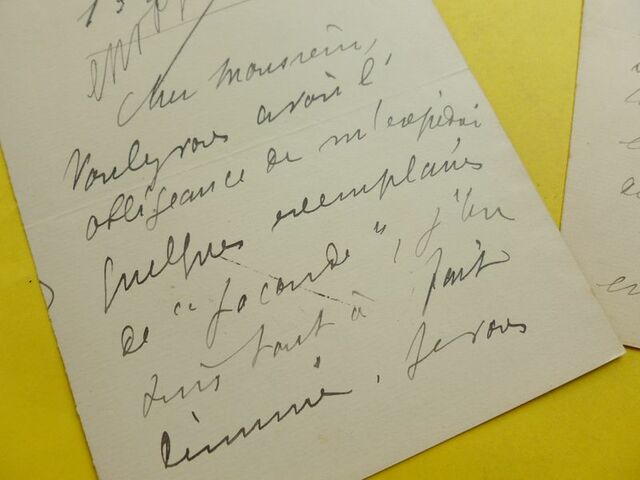 Cher Monsieur,
Voulez vous avoir l'
obligeance de m'expédier
quelques exemplaires
de "Joconde", j'en
suis tout à fait
démunie. Je vous